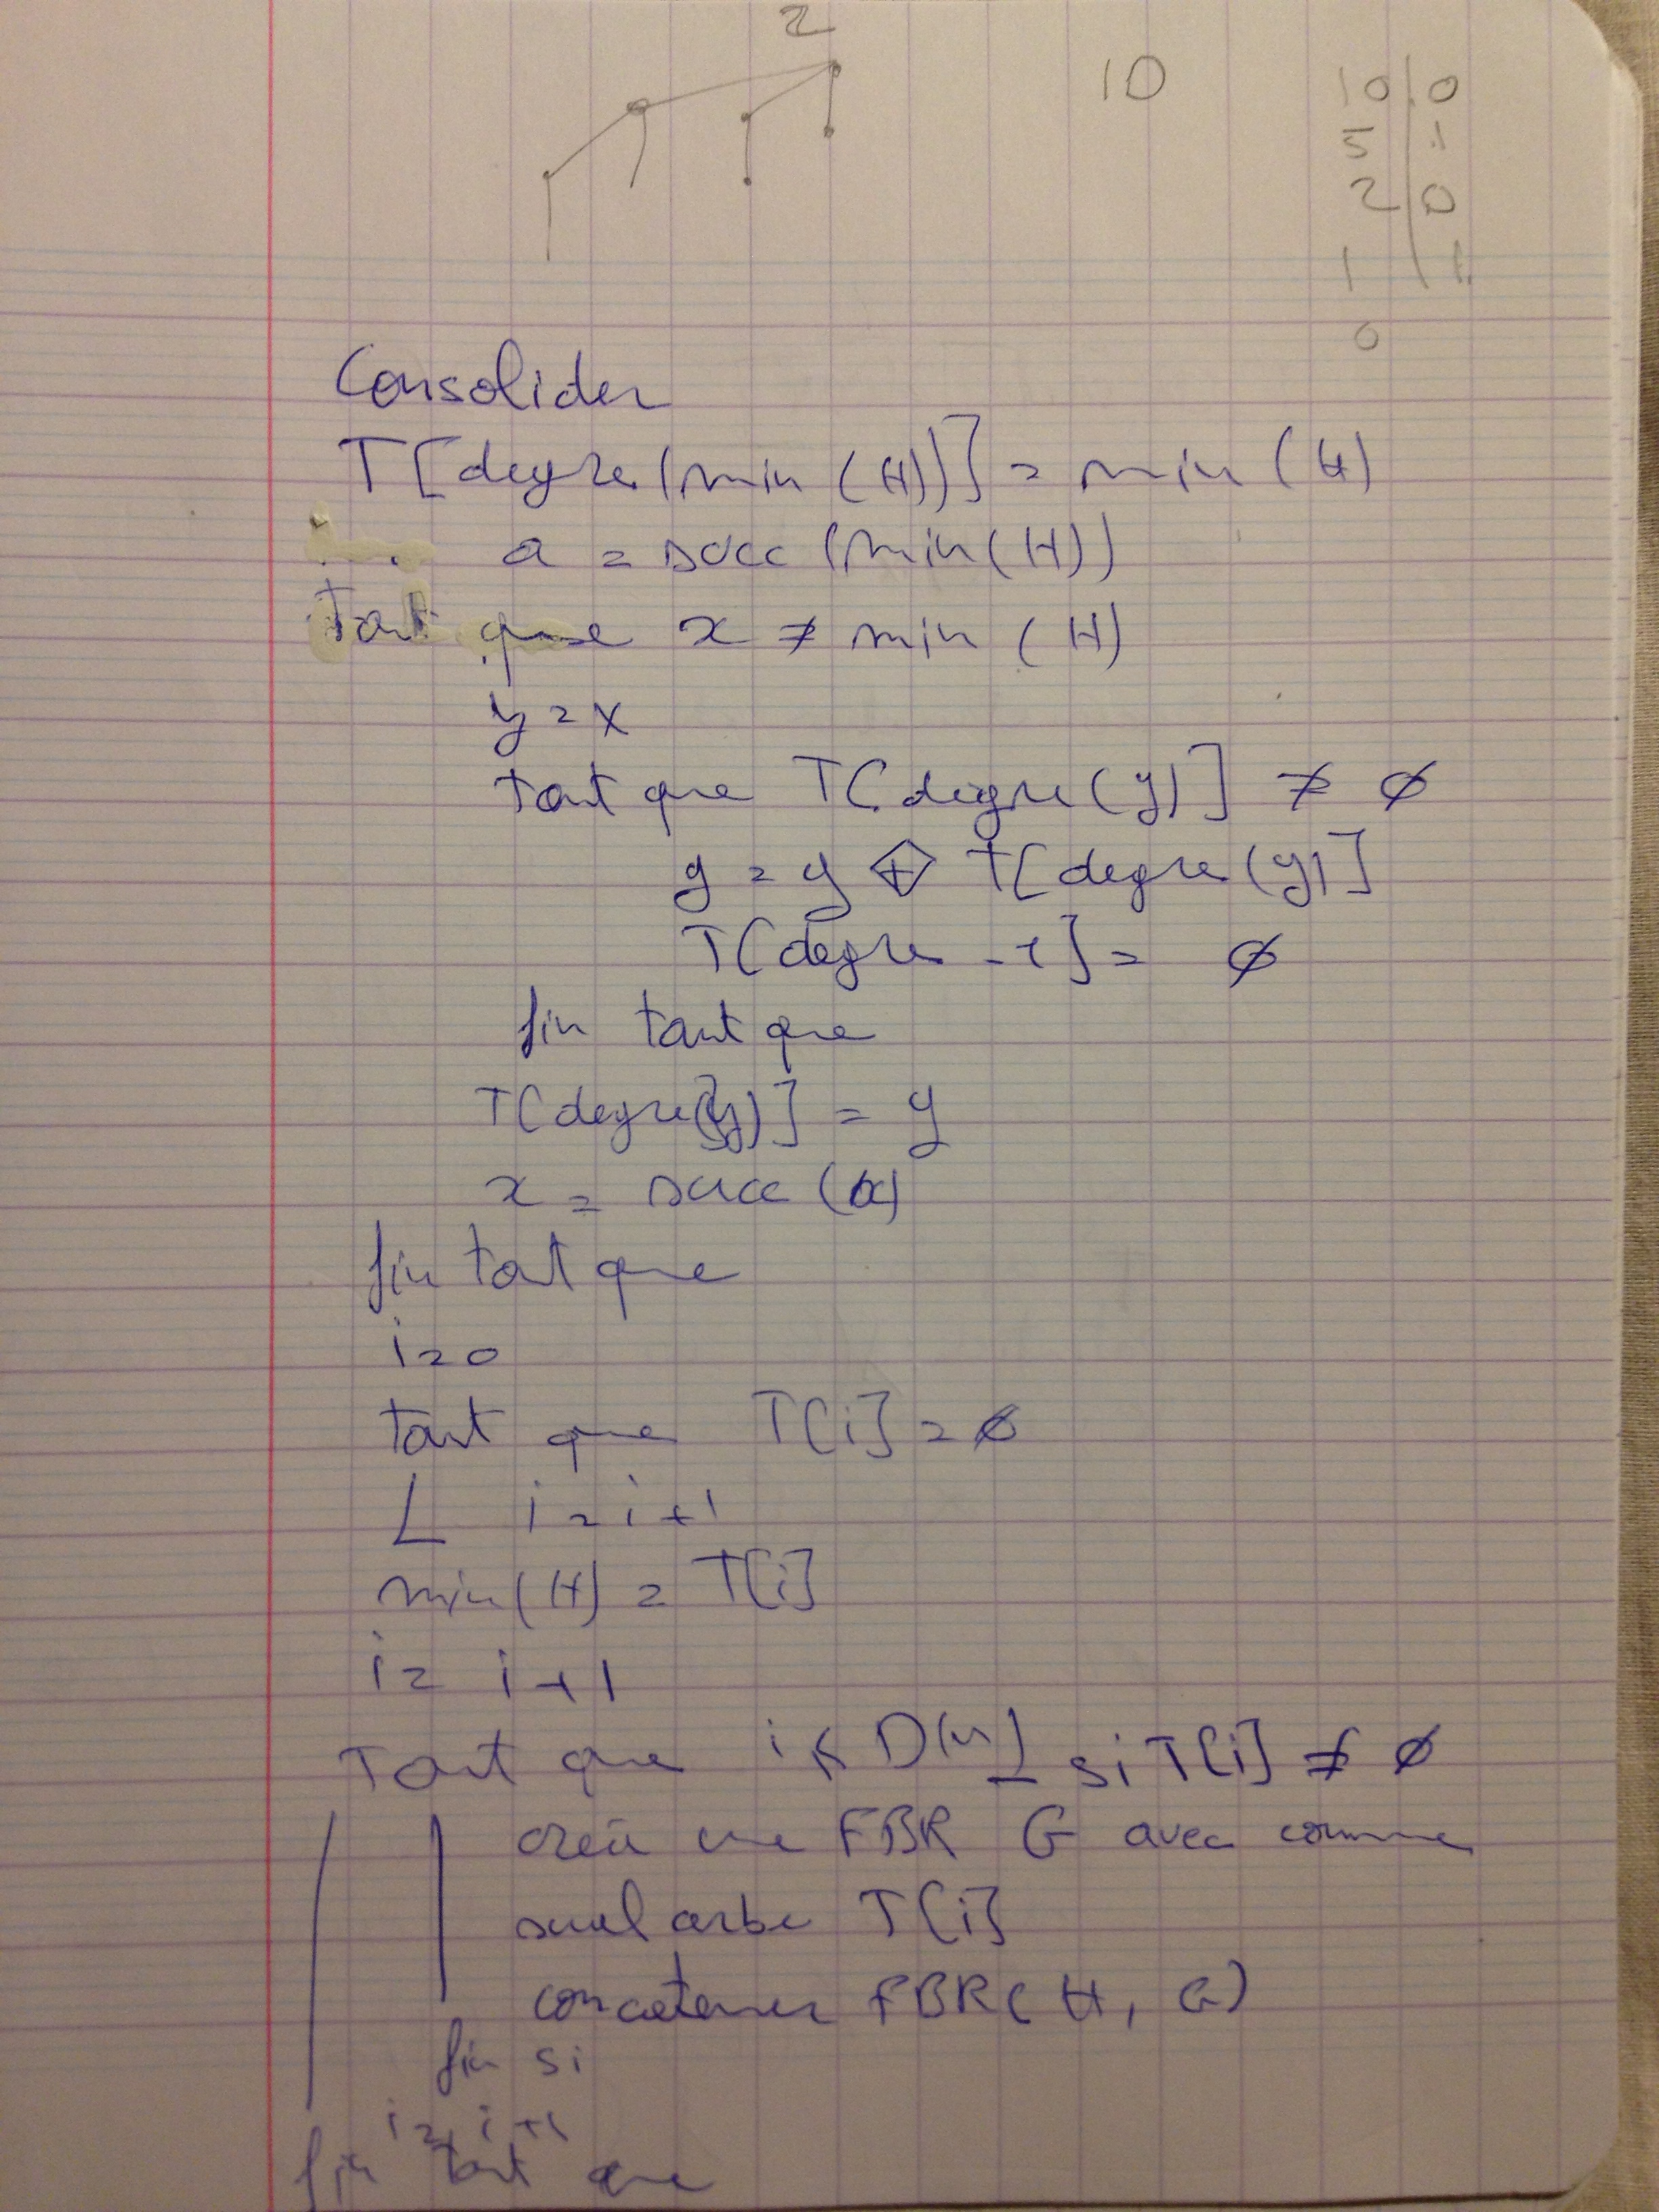 2
10
10 | 0
5 | 1
2 | 0
1 | 1
0
Consolider
T[degre(min(H))] = min(H)
x = succ(min(H))
Tant que x ≠ min(H)
y = x
tant que T[degre(y)] ≠ ∅
y = y ⊕ T[degre(y)]
T[degre - 1] = ∅
fin tant que
T[degre(y)] = y
x = succ(x)
fin tant que
i = 0
tant que T[i] = ∅
i = i + 1
min(H) = T[i]
i = i + 1
Tant que i ≤ D(n) si T[i] ≠ ∅
créer une FBR G avec comme
seul arbre T[i]
concatener FBR(H, G)
fin si
i = i + 1
fin tant que